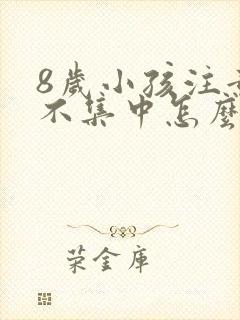 8歲小孩注
不集中怎麼
荣金庫